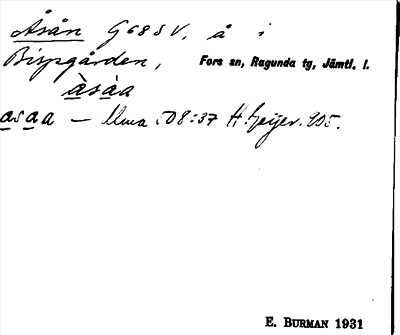 Åsån G68SV, å i
Bispgården, Fors sn, Ragunda tg, Jämtl. l.
àsàa
asaa — Uma 508:37 H. Geijer.
E. BURMAN 1931